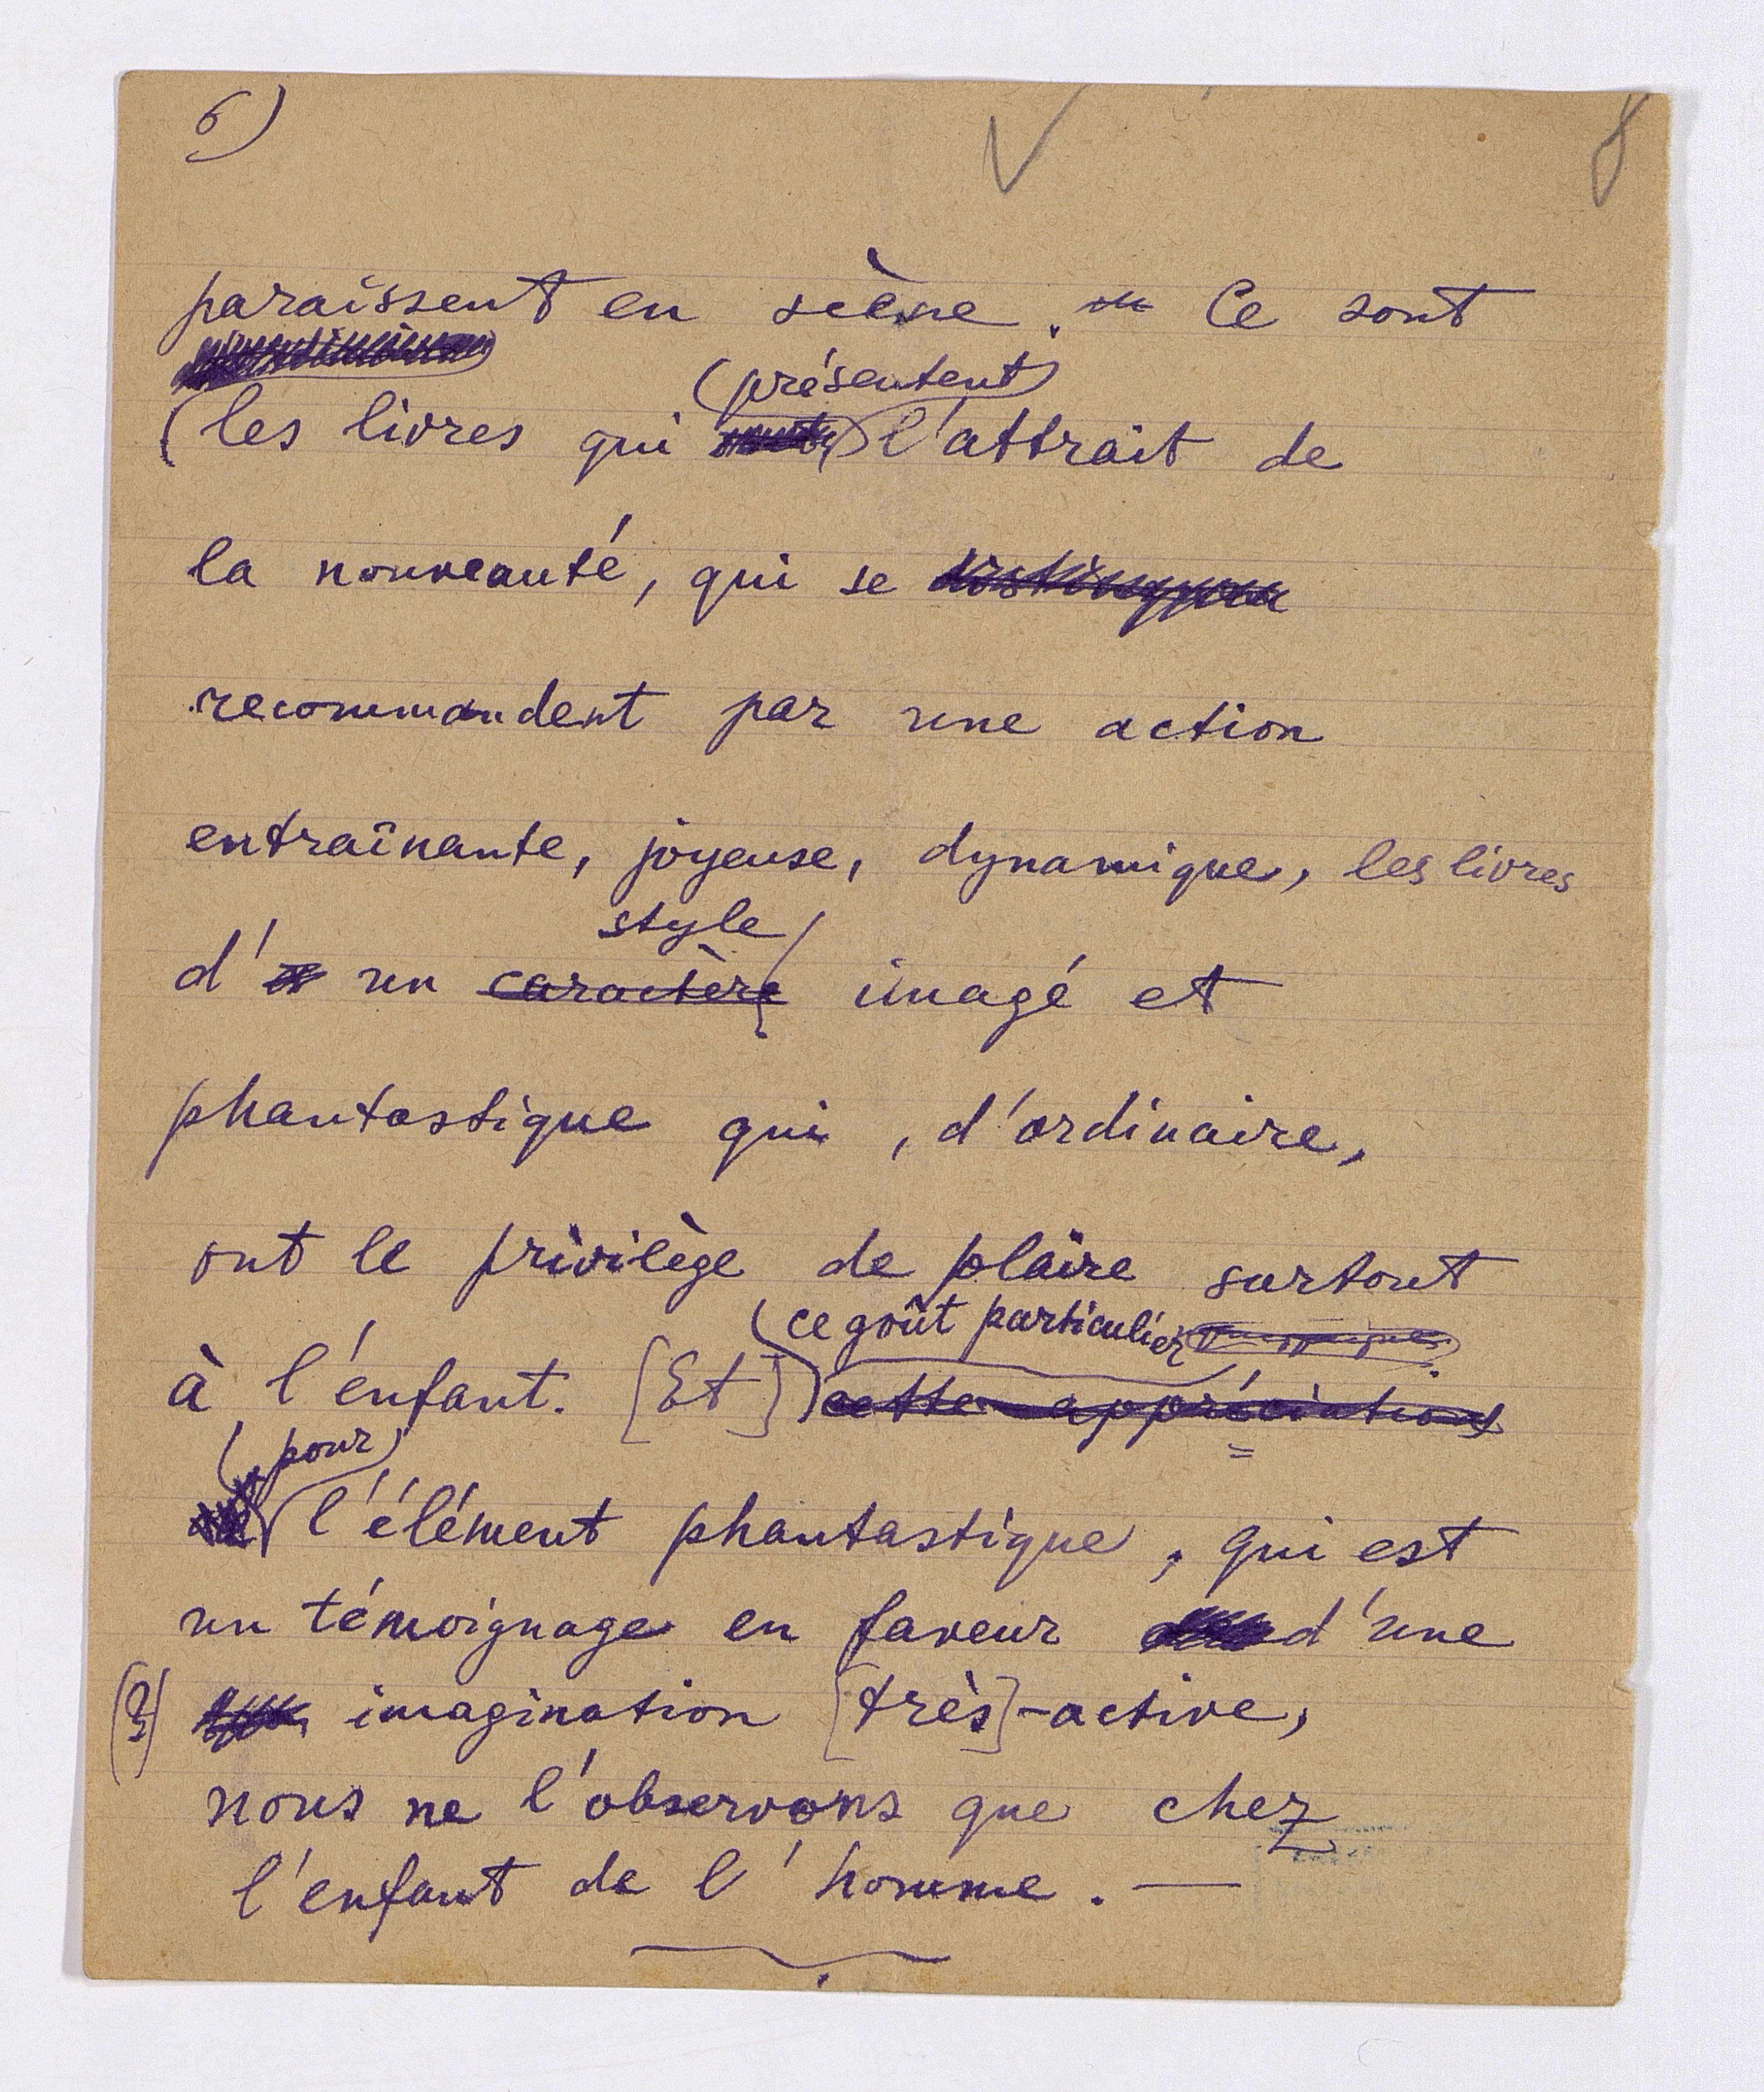 6)
8
paraissent en scène. Ce sont
(présentent)
(les livres qui l'attrait de
la nouveauté, qui se
recommandent par une action
entraînante, joyeuse, dynamique, les livres
style
d' un caractère imagé et
phantastique qui, d'ordinaire,
ont le privilège de plaire surtout
(ce goût particulier
à l'enfant. [Et] cette appréciation
(pour)
l'élément phantastique, qui est
un témoignage en faveur d'une
imagination [très]-active,
nous ne l'observons que chez
l'enfant de l'homme. —